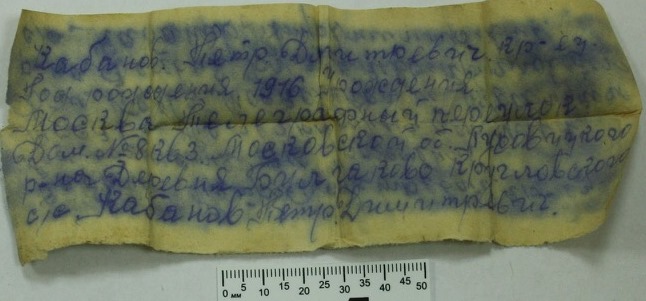 Кабанов. Петр. Дмитриевич. кр-ец.
Год рождения 1916 рождения
Москва Телеграфный переулок
Дом. № 8 кв 3. Московской об.
р-на Деревня Булгаково Кругловского
с/с. Кабанов Петр Димитревич.
0 мм 5 10 15 20 25 30 35 40 45 50